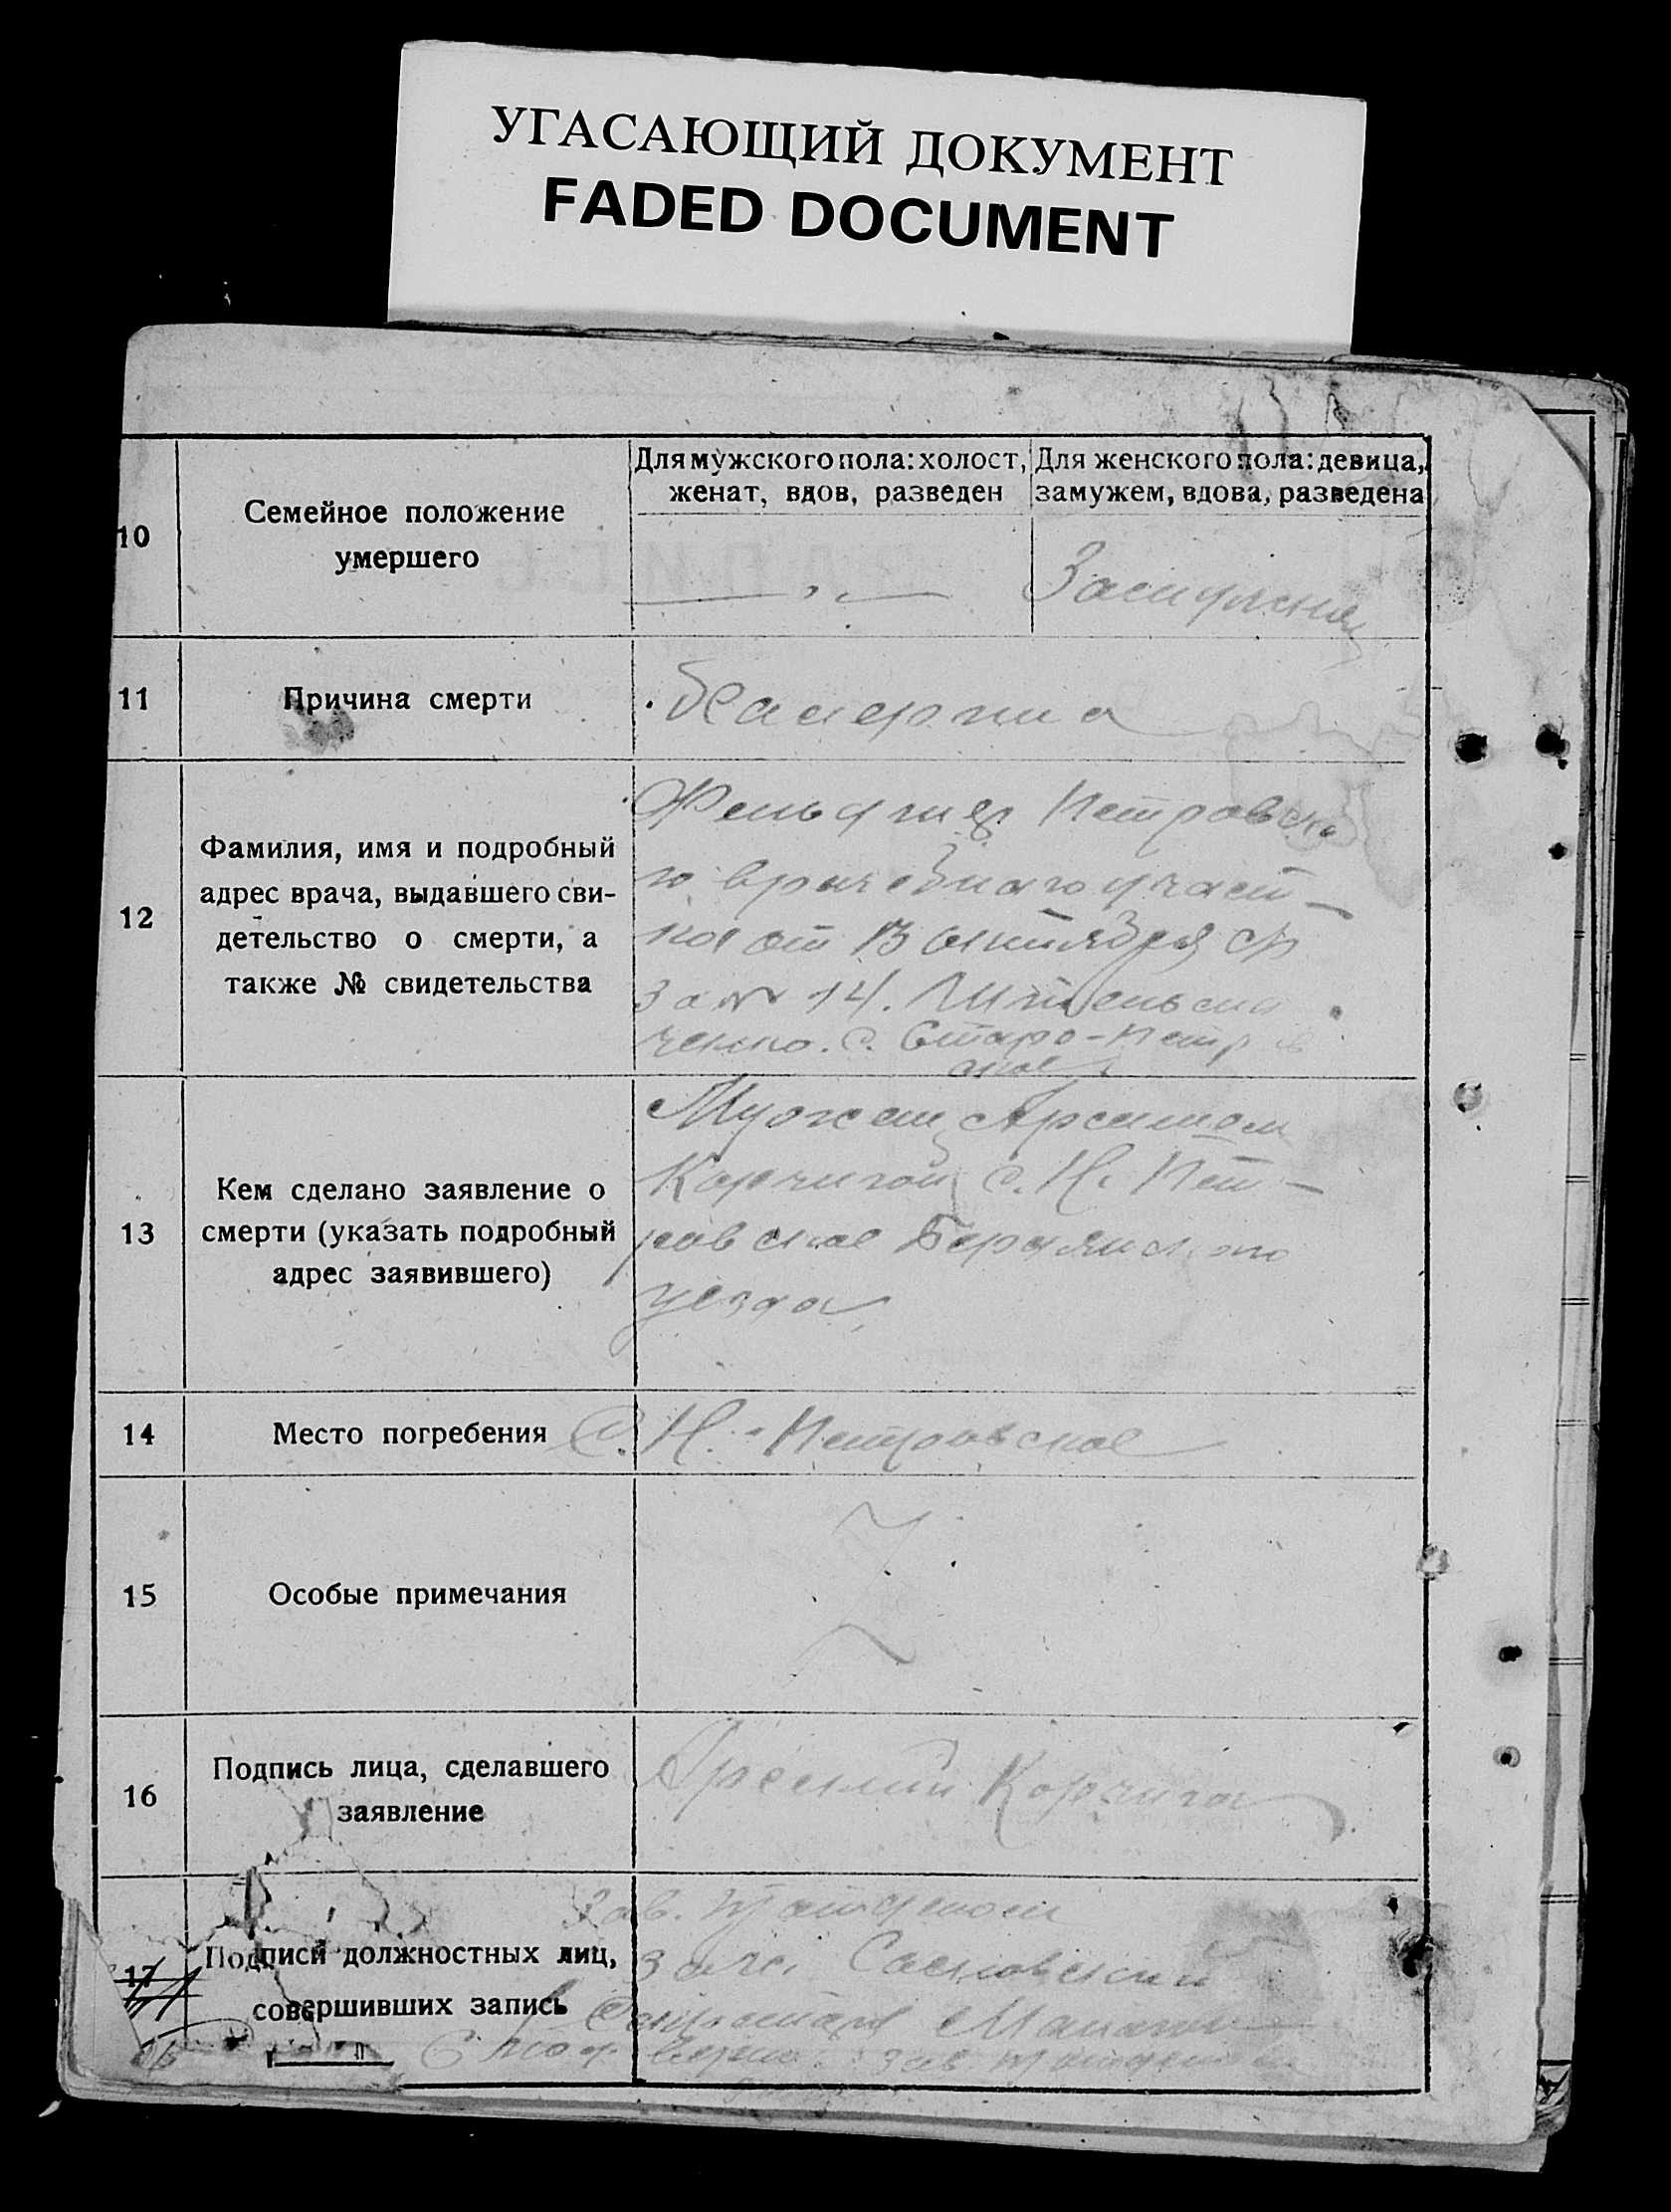 УГАСАЮЩИЙ ДОКУМЕНТ
FADED DOCUMENT
10
Семейное положение
умершего
Для мужского пола: холост,
женат, вдов, разведен
Для женского пола: девица,
замужем, вдова, разведена
11
Причина смерти
12
Фамилия, имя и подробный
адрес врача, выдавшего сви-
детельство о смерти, а
также № свидетельства
Фельдшер Петровско
го врачебного участ-
ка от 13 октября
за № 14.
с. Старо-Петров
ское
13
Кем сделано заявление о
смерти (указать подробный
адрес заявившего)
Мужем Арсением
Корчигой с. Н. Пет-
ровское Бердянского
уезда
14
Место погребения
С. Н.-Петровское
15
Особые примечания
16
Подпись лица, сделавшего
заявление
Арсений Корчига
17
Подписи должностных лиц,
совершивших запись
Зав.
Сосновский
верно зав